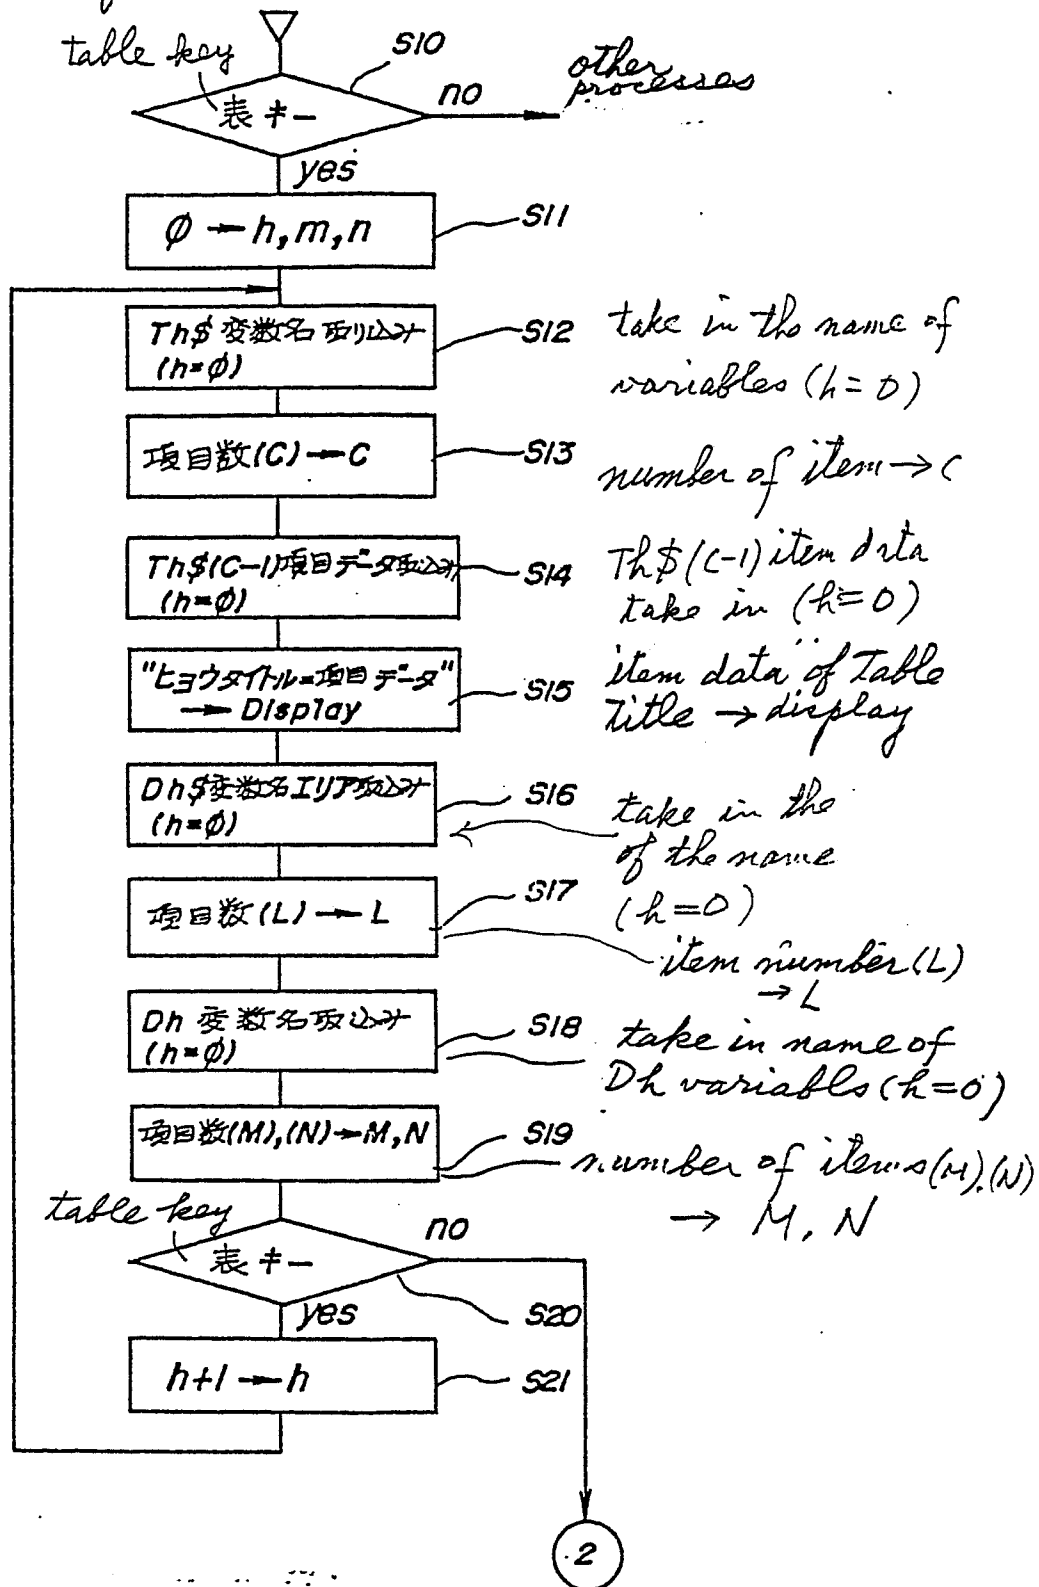 table key
S10
表キー
no
other
processes
yes
φ → h, m, n
S11
Th$ 変数名取り込み
(h=φ)
S12
take in the name of
variables (h=0)
項目数(C) → C
S13
number of item → C
Th$(C-1)項目データ取込み
(h=φ)
S14
Th$(C-1) item data
take in (h=0)
"ヒョウタイトル=項目データ"
→ Display
S15
"item data" of Table
Title → display
Dh$変数名エリア取込み
(h=φ)
S16
take in the
of the name
(h=0)
項目数(L) → L
S17
item number (L)
→ L
Dh 変数名取込み
(h=φ)
S18
take in name of
Dh variabls (h=0)
項目数(M),(N) → M, N
S19
number of items (M).(N)
→ M, N
table key
表キー
no
S20
yes
h+1 → h
S21
2